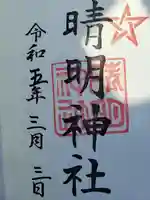 晴明神社
令和五年 三月 三日